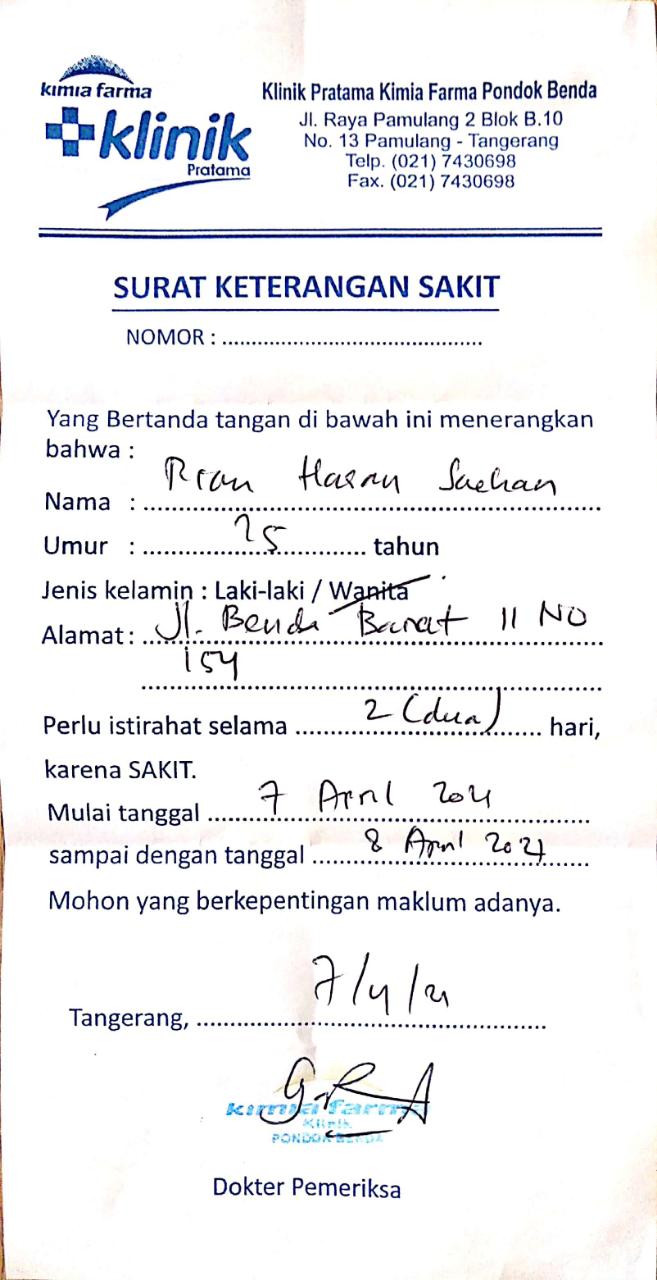 kimia farma
klinik
Pratama
Klinik Pratama Kimia Farma Pondok Benda
Jl. Raya Pamulang 2 Blok B.10
No. 13 Pamulang - Tangerang
Telp. (021) 7430698
Fax. (021) 7430698
SURAT KETERANGAN SAKIT
NOMOR : ............................................
Yang Bertanda tangan di bawah ini menerangkan
bahwa :
Nama : Rian Hasan
Umur : 25 tahun
Jenis kelamin : Laki-laki / Wanita
Alamat : Jl. Benda Barat 11 NO
154
Perlu istirahat selama 2 (dua) hari,
karena SAKIT.
Mulai tanggal 7 April 2021
sampai dengan tanggal 8 April 2021
Mohon yang berkepentingan maklum adanya.
Tangerang, 7/4/21
kimia farma
Klinik
PONDOK BENDA
Dokter Pemeriksa